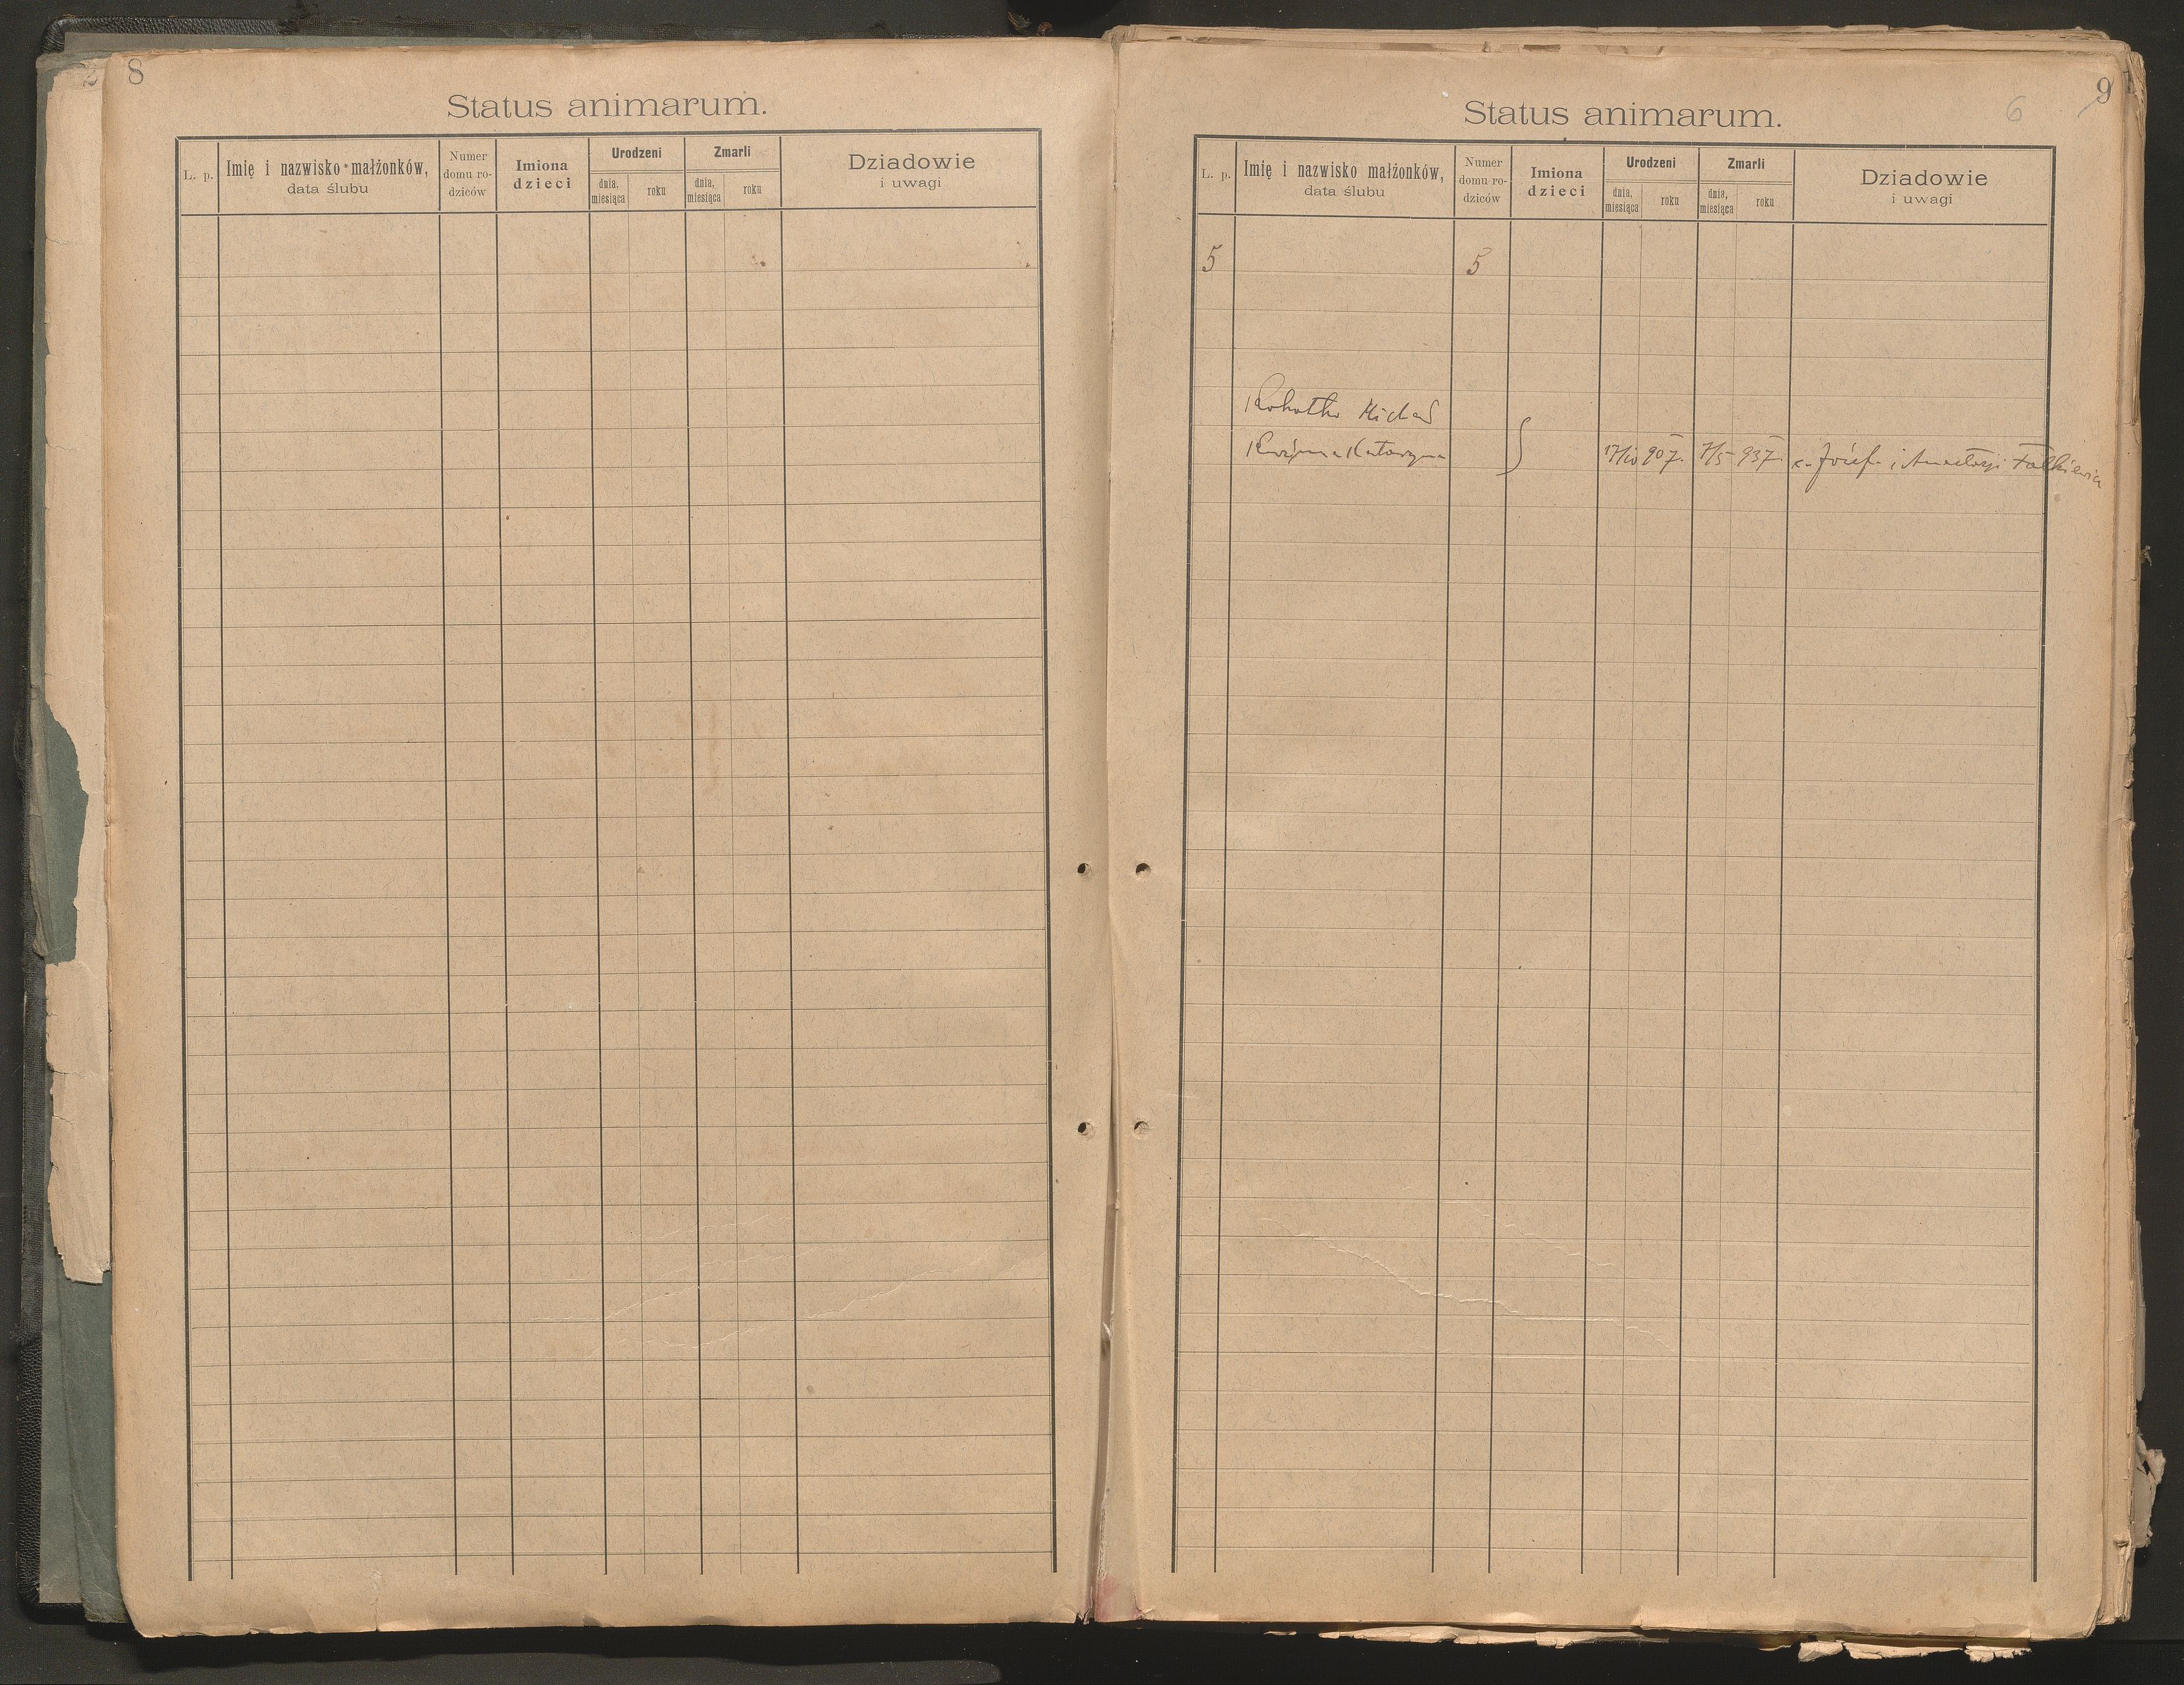 2 8
Status animarum.
L. p. Imię i nazwisko małżonków, data ślubu Numer domu rodziców Imiona dzieci Urodzeni dnia, miesiąca roku Zmarli dnia, miesiąca roku Dziadowie i uwagi
6 9
Status animarum.
L. p. Imię i nazwisko małżonków, data ślubu Numer domu rodziców Imiona dzieci Urodzeni dnia, miesiąca roku Zmarli dnia, miesiąca roku Dziadowie i uwagi
5 5
Michał
Katarzyna 17/10 907. 7/5 937. c. Józefa i Anastazji Fałkiewicz